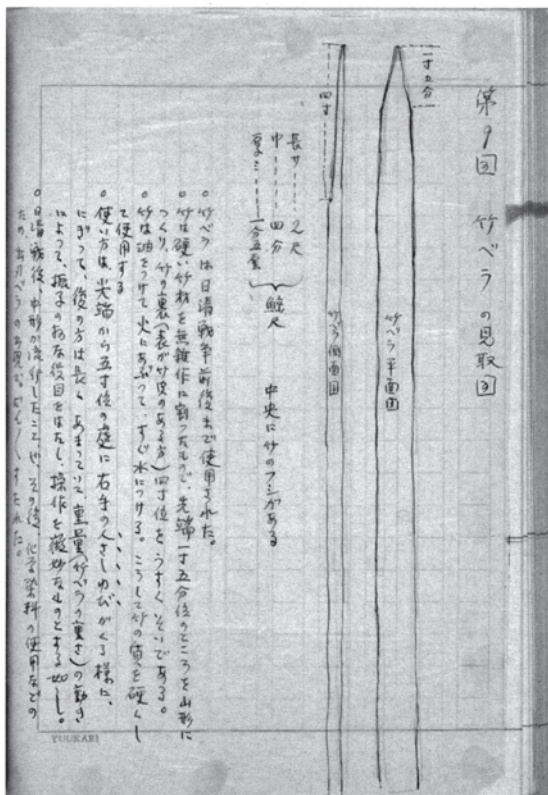 第9図 竹ベラの見取図
一寸五分
竹ベラ平面図
四寸
竹ベラ側面図
長サ……2尺
巾……四分
厚ミ……一分五厘
鯨尺
中央に竹のフシがある
○竹ベラは日清戦争前後まで使用された。
○竹は硬い竹材を無雑作に割ったもので、先端一寸五分位のところを山形に
つくり、竹の裏(表が竹皮のある方)四寸位をうすくそいである。
○竹は油をつけて火にあぶって、すぐ水につける。こうして竹の質を硬くし
て使用する
○使い方は、尖端から五寸位の處に右手の人さしゆびがくる様に、
にぎって、後の方は長くあまっていて、重量(竹ベラの重さ)の動き
によって、振子のような役目をはたし、操作を微妙なものとする如し。
○日清戦後、中形が流行したことや、その後、化学染料の使用などの
ため、